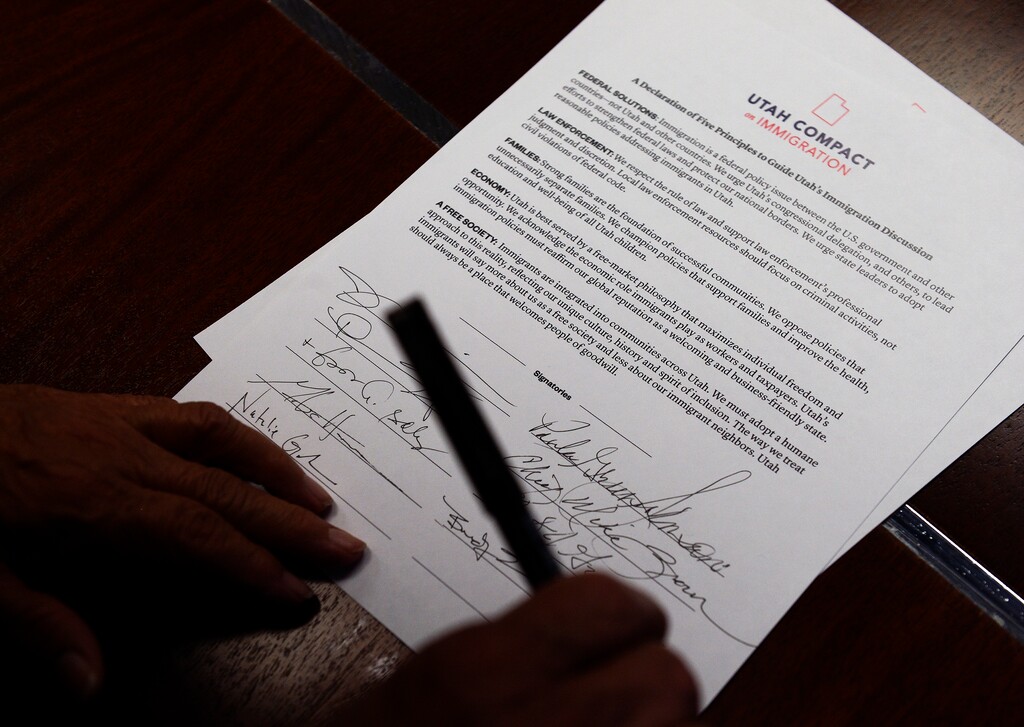 UTAH COMPACT
ON IMMIGRATION
A Declaration of Five Principles to Guide Utah's Immigration Discussion
FEDERAL SOLUTIONS: Immigration is a federal policy issue between the U.S. government and other
countries—not Utah and other countries. We urge Utah's congressional delegation, and others, to lead
efforts to strengthen federal laws and protect our national borders. We urge state leaders to adopt
reasonable policies addressing immigrants in Utah.
LAW ENFORCEMENT: We respect the rule of law and support law enforcement's professional
judgment and discretion. Local law enforcement resources should focus on criminal activities, not
civil violations of federal code.
FAMILIES: Strong families are the foundation of successful communities. We oppose policies that
unnecessarily separate families. We champion policies that support families and improve the health,
education and well-being of all Utah children.
ECONOMY: Utah is best served by a free-market philosophy that maximizes individual freedom and
opportunity. We acknowledge the economic role immigrants play as workers and taxpayers. Utah's
immigration policies must reaffirm our global reputation as a welcoming and business-friendly state.
A FREE SOCIETY: Immigrants are integrated into communities across Utah. We must adopt a humane
approach to this reality, reflecting our unique culture, history and spirit of inclusion. The way we treat
immigrants will say more about us as a free society and less about our immigrant neighbors. Utah
should always be a place that welcomes people of goodwill.
Signatories
Chief Mike Brown
Natalie